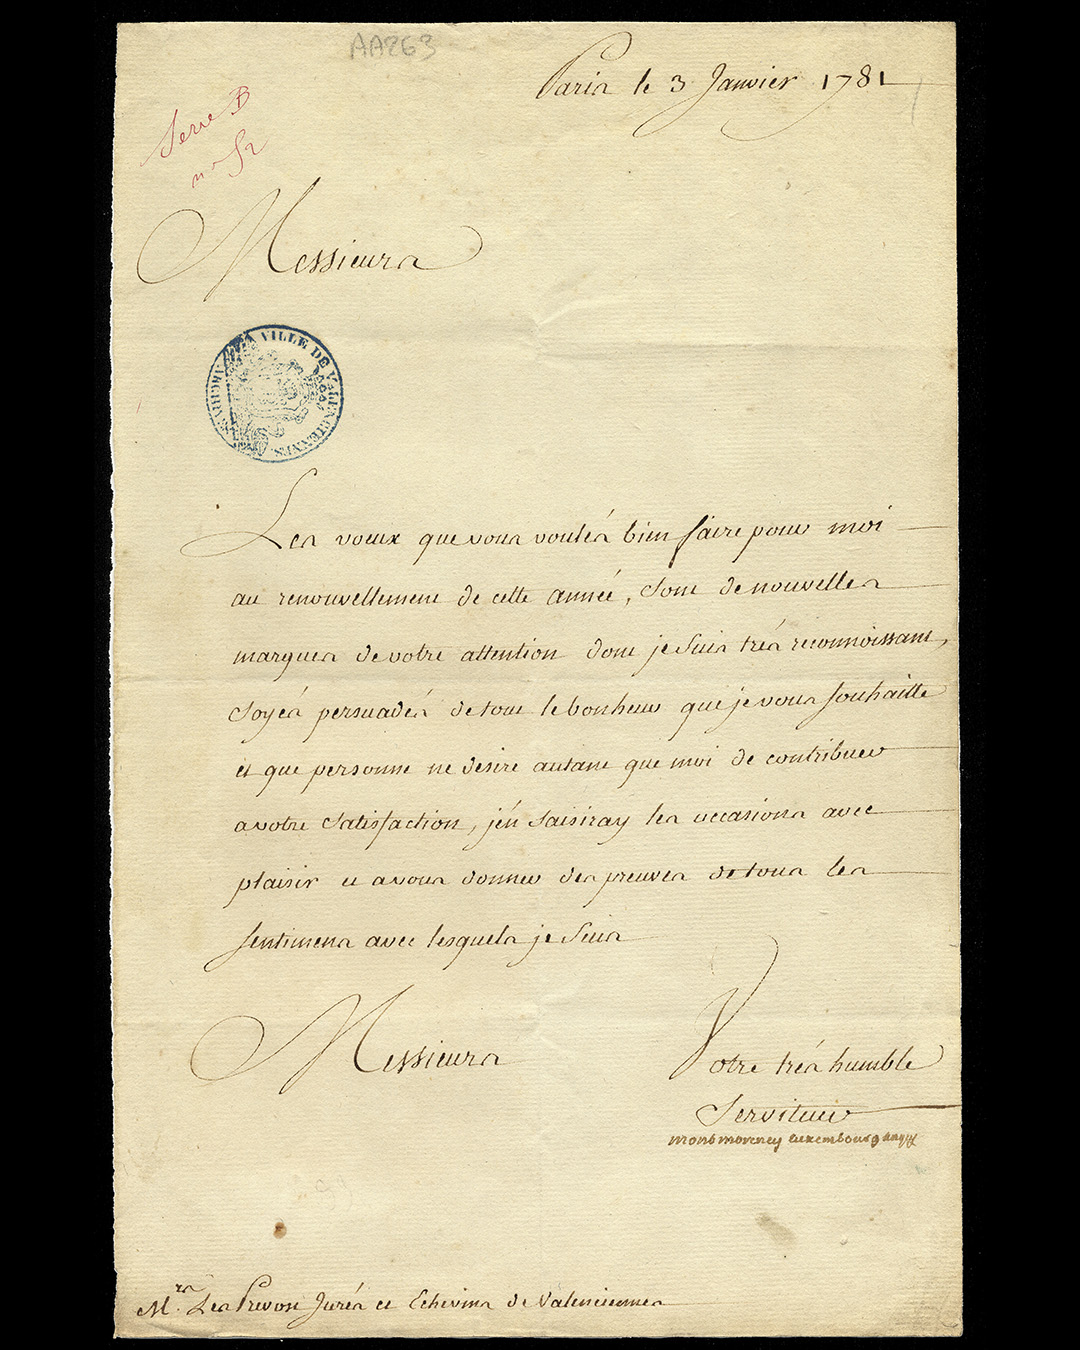 AA263
Paris le 3 Janvier 1781
Serie B
n° 52
Messieurs
ARCHIVES DE LA VILLE DE VALENCIENNES.
Les voeux que vous voulés bien faire pour moi
au renouvellement de cette année, sont de nouvelles
marques de votre attention dont je suis trés reconnoissant,
soyés persuadés de tout le bonheur que je vous souhaitte
et que personne ne desire autant que moi de contribuer
a votre satisfaction, j'en saisiray les occasions avec
plaisir et a vous donner des preuves de tous les
sentimens avec lesquels je suis
Messieurs
Votre trés humble
Serviteur
montmorency luxembourg
Mrs. Les Prevost Jurés et Echevins de Valenciennes